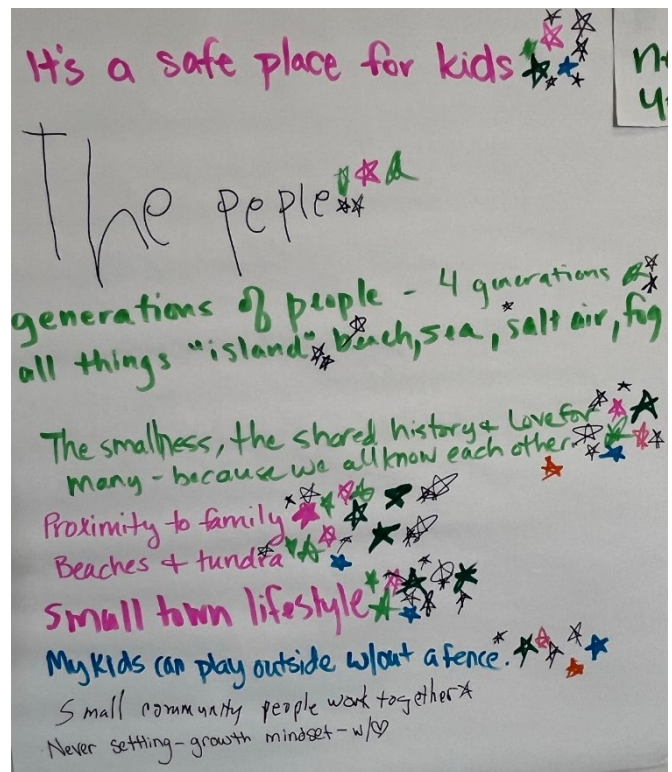 It's a safe place for kids
The peple
generations of people - 4 generations
all things "island" beach, sea, salt air, fog
The smallness, the shared history & Love for
many - because we all know each other
Proximity to family
Beaches & tundra
Small town lifestyle
My kids can play outside w/out a fence.
Small community people work together
Never settling - growth mindset - w/♡